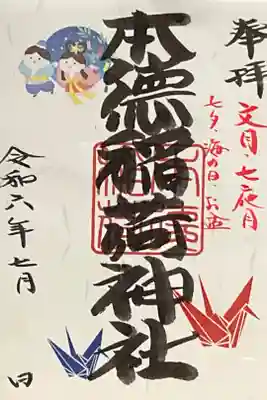 奉拝
文月・七夜月
七夕、海の日、お盆
本徳稲荷神社
令和六年七月
日